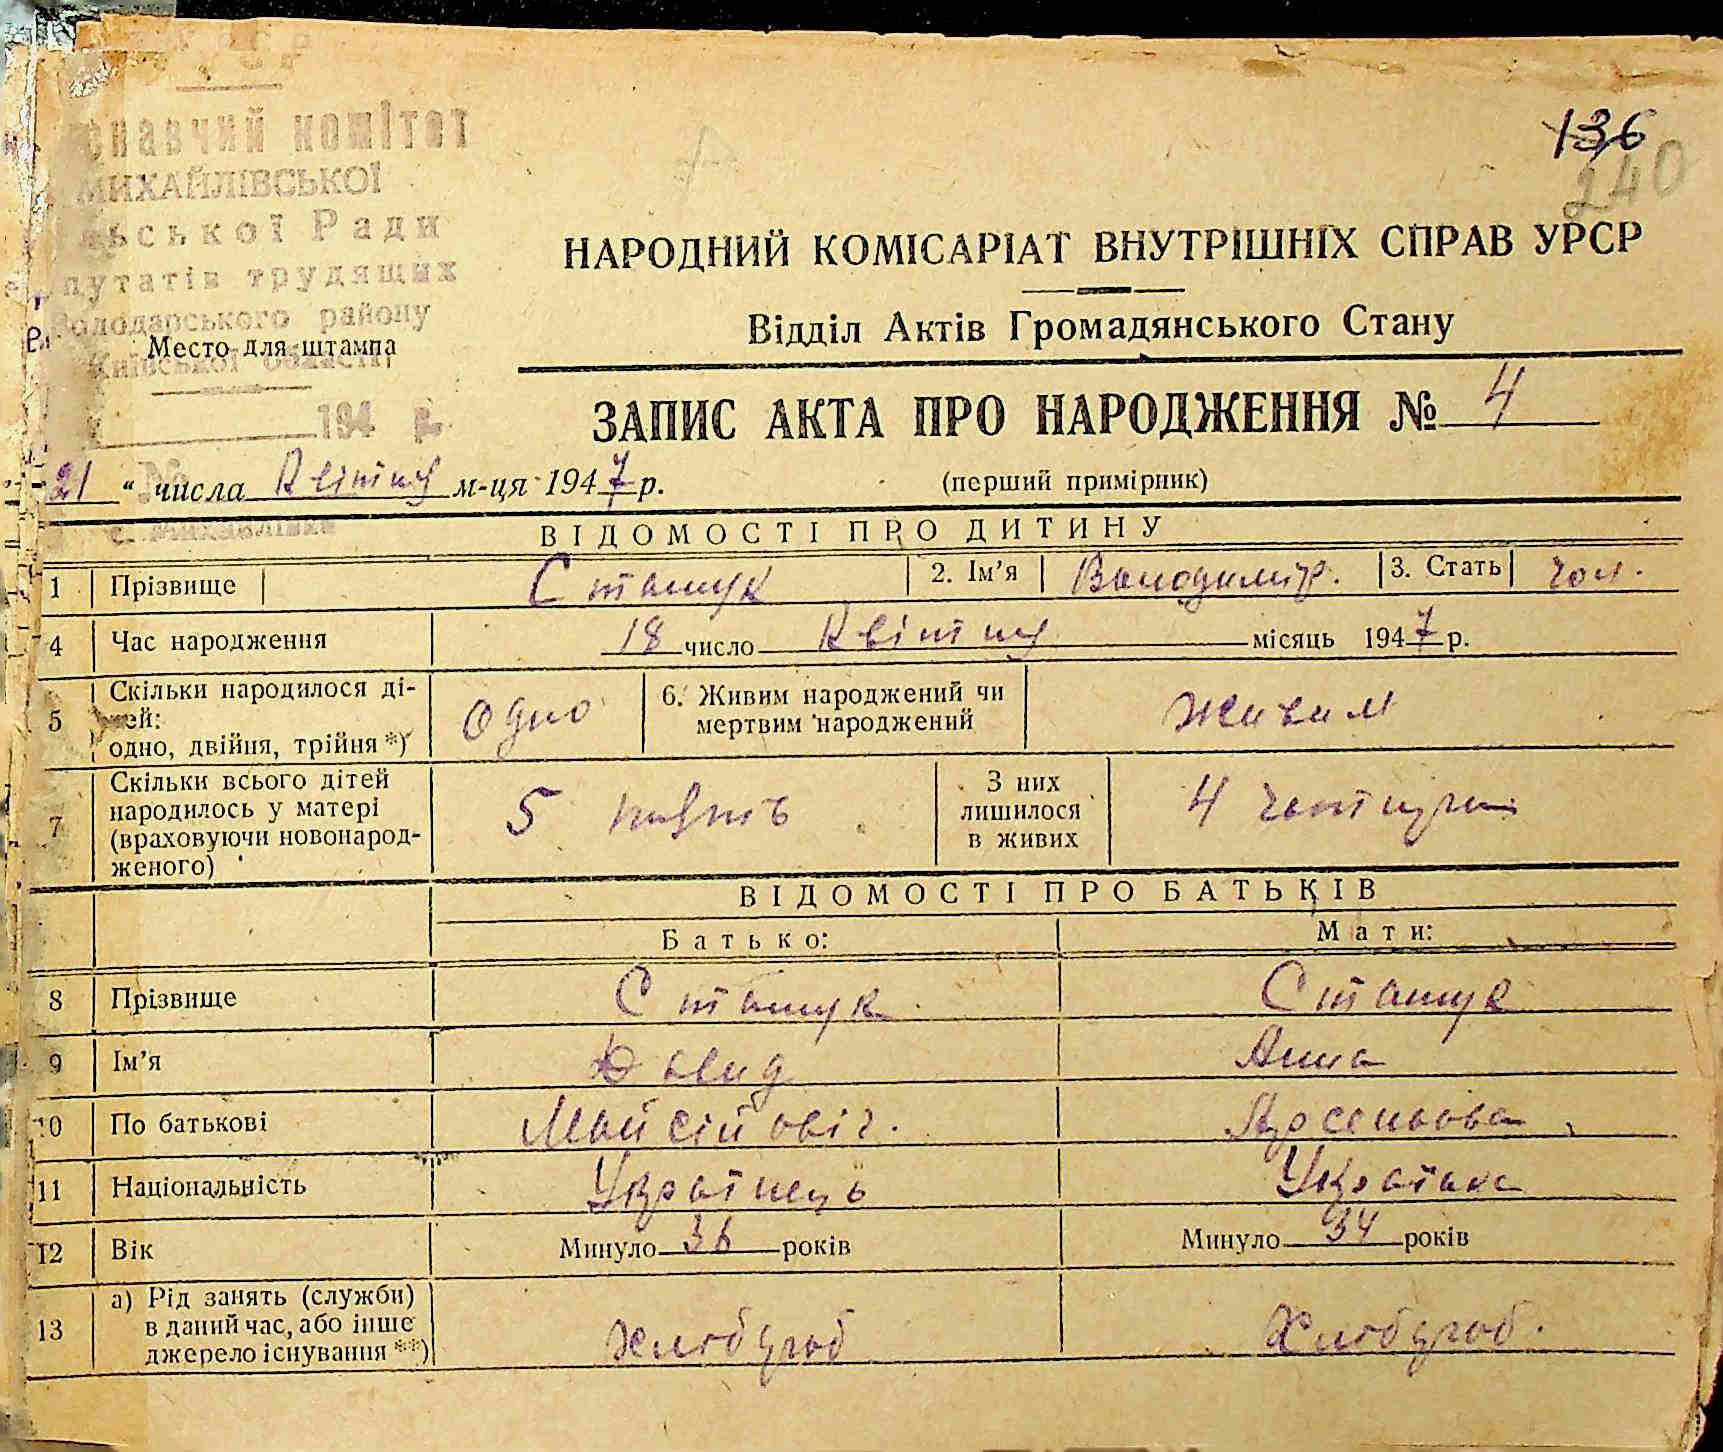 136
240
навчий комітет
МИХАЙЛІВСЬКОЇ
ської Ради
путатів трудящих
Володарського району
Київської області
Место для штампа
194 р.
НАРОДНИЙ КОМІСАРІАТ ВНУТРІШНІХ СПРАВ УРСР
Відділ Актів Громадянського Стану
ЗАПИС АКТА ПРО НАРОДЖЕННЯ № 4
(перший примірник)
21 " числа Квітня м-ця 1947 р.
с. Михайлівка
ВІДОМОСТІ ПРО ДИТИНУ
1 Прізвище Сташук 2. Ім'я Володимир. 3. Стать чол.
4 Час народження 18 число Квітня місяць 1947 р.
5 Скільки народилося дітей: одно, двійня, трійня *) Одно 6. Живим народжений чи мертвим народжений Живим
7 Скільки всього дітей народилось у матері (враховуючи новонародженого) 5 пять З них лишилося в живих 4 чотири
ВІДОМОСТІ ПРО БАТЬКІВ
Батько: Мати:
8 Прізвище Сташук Сташук
9 Ім'я Давид Анна
10 По батькові Мойсійовіч. Арсеньовна
11 Національність Українець Українка
12 Вік Минуло 36 років Минуло 34 років
13 а) Рід занять (служби) в даний час, або інше джерело існування **) Хлібороб Хлібороб.